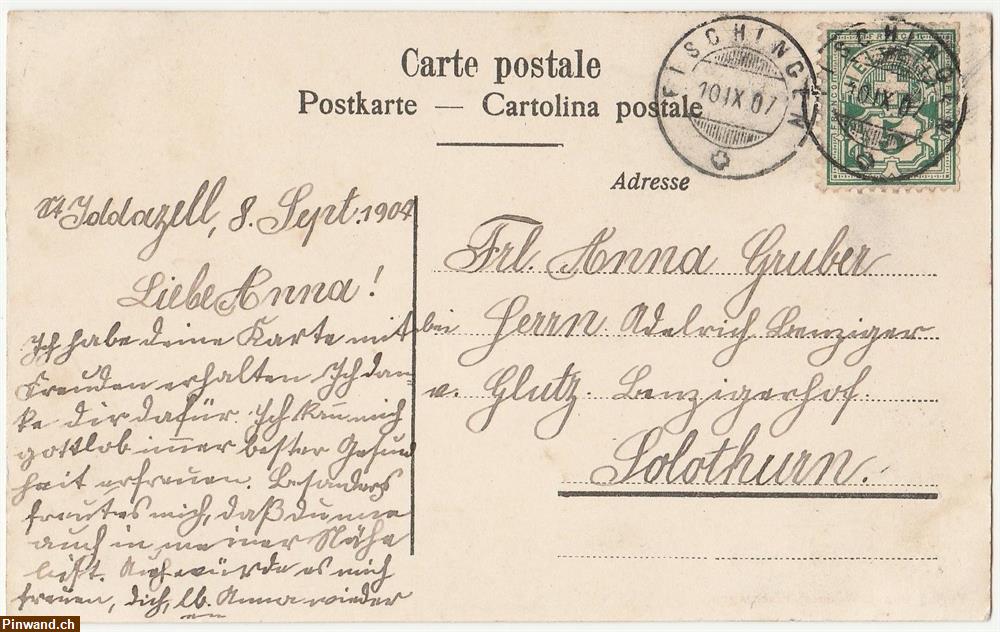 Carte postale
Postkarte — Cartolina postale
Adresse
FISCHINGEN
10.IX.07
FISCHINGEN
10.IX.07
HELVETIA
5
St. Iddazell, 8. Sept. 1907
Liebe Anna!
Ich habe deine Karte mit
Freuden erhalten. Ich dan-
ke dir dafür. Ich kan mich
gottlob immer bester Gesund
heit erfreuen. Besonders
freut es mich, daß du nun
auch in meiner Nähe
bist. Auch würde es mich
freuen, dich, lb. Anna wieder
Frl. Anna Gruber
bei Herrn Adelrich Benziger
v. Glutz Benzigerhof
Solothurn.
Pinwand.ch